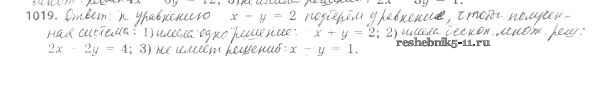 1019. Ответ: к уравнению x - y = 2 подберём уравнение, чтобы получен-
ная система: 1) имела одно решение: x + y = 2; 2) имела бескон. множ. реш:
2x - 2y = 4; 3) не имеет решений: x - y = 1.
www.reshebnik5-11.ru